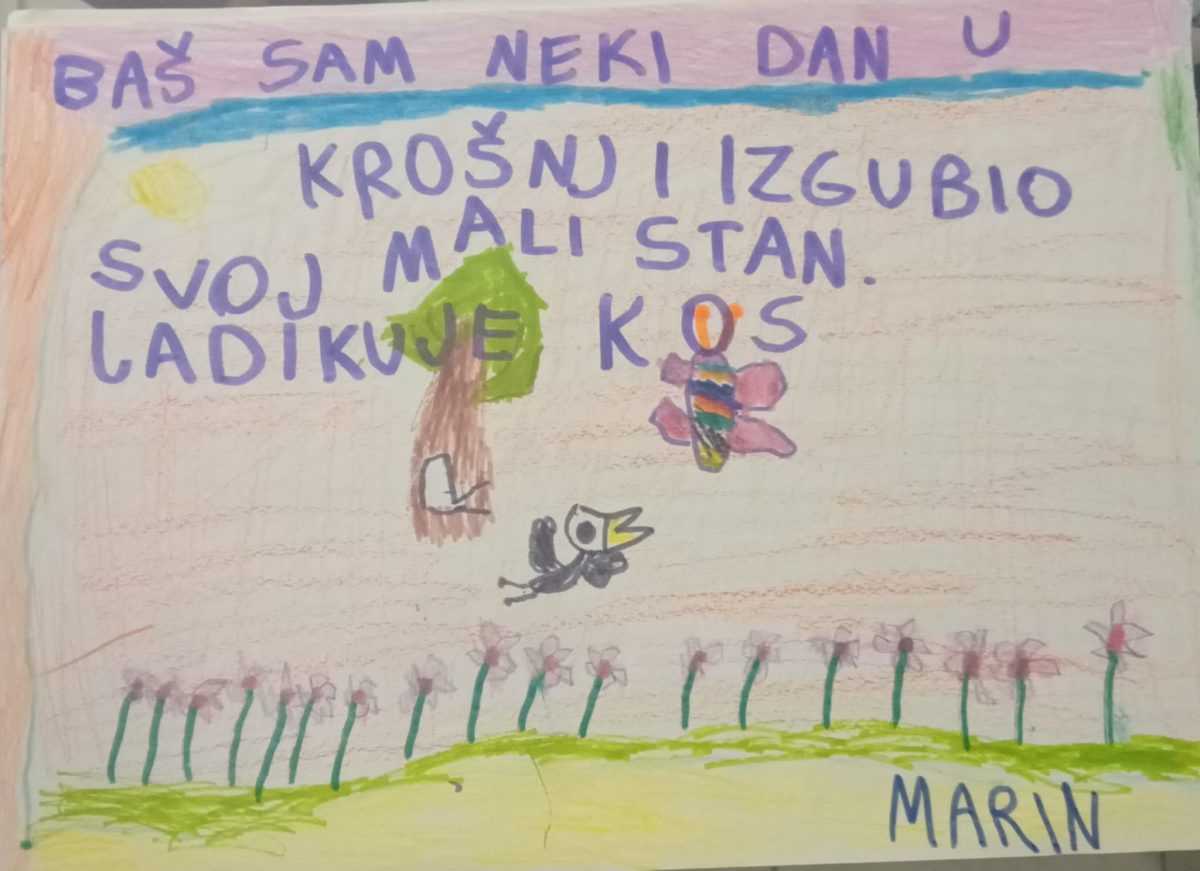 BAŠ SAM NEKI DAN U
KROŠNJI IZGUBIO
SVOJ MALI STAN.
LADIKUJE KOS
MARIN